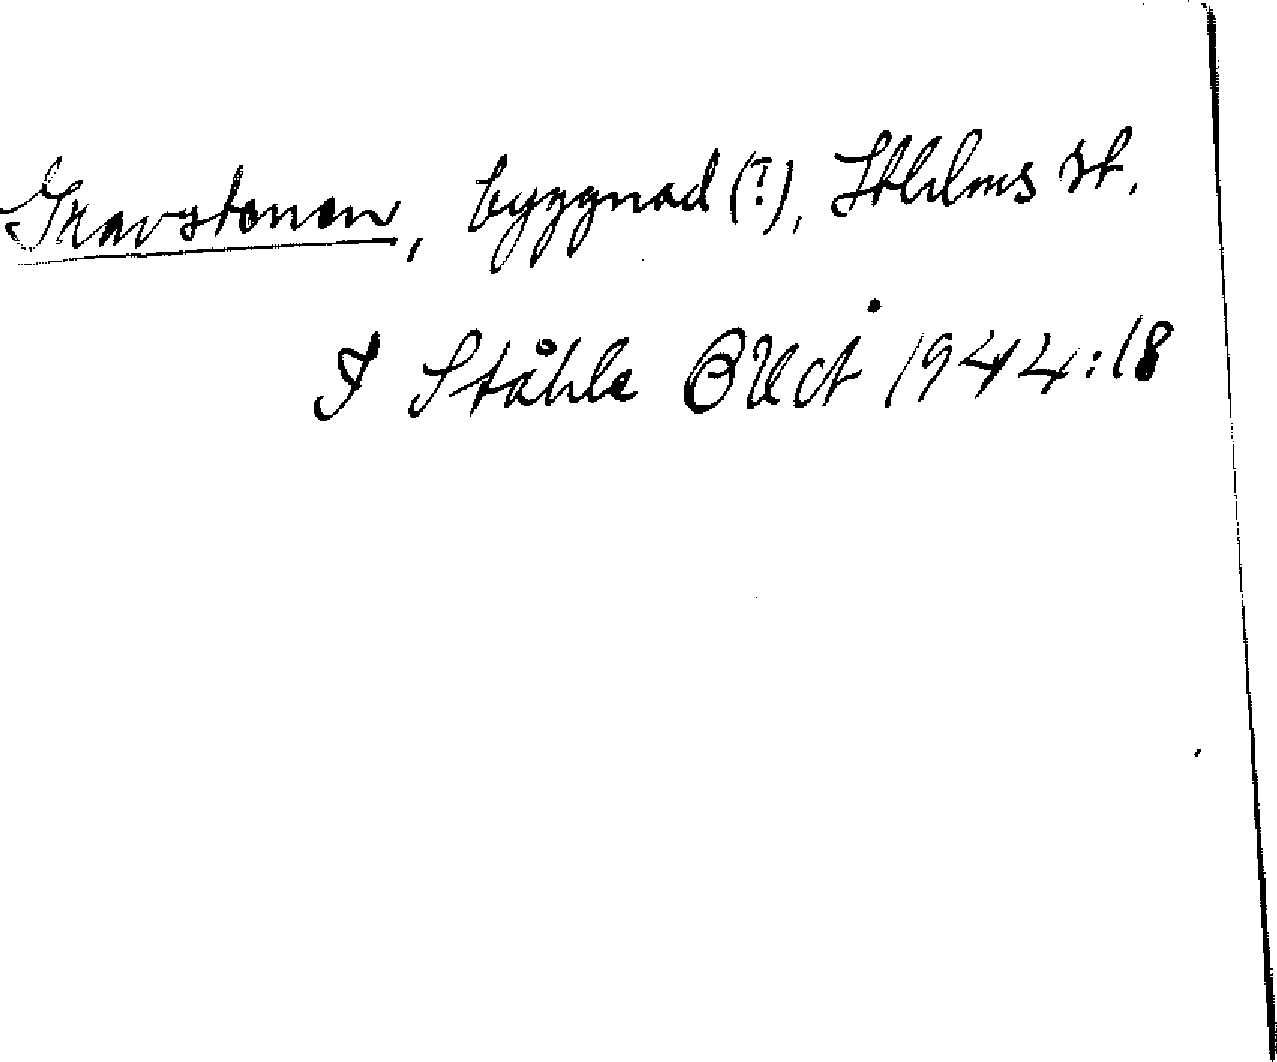 Gravstenen, byggnad (?), Sthlms st.
I Ståhle BUÅ 1944:18